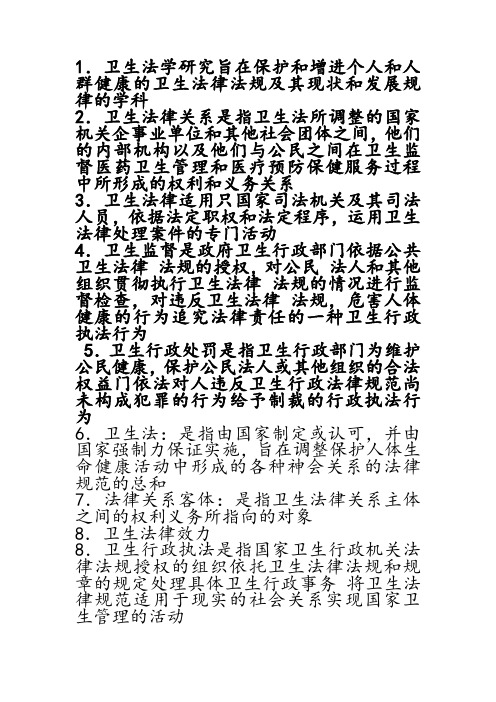 1．卫生法学研究旨在保护和增进个人和人
群健康的卫生法律法规及其现状和发展规
律的学科
2．卫生法律关系是指卫生法所调整的国家
机关企事业单位和其他社会团体之间，他们
的内部机构以及他们与公民之间在卫生监
督医药卫生管理和医疗预防保健服务过程
中所形成的权利和义务关系
3．卫生法律适用只国家司法机关及其司法
人员，依据法定职权和法定程序，运用卫生
法律处理案件的专门活动
4．卫生监督是政府卫生行政部门依据公共
卫生法律 法规的授权，对公民 法人和其他
组织贯彻执行卫生法律 法规的情况进行监
督检查，对违反卫生法律 法规，危害人体
健康的行为追究法律责任的一种卫生行政
执法行为
5．卫生行政处罚是指卫生行政部门为维护
公民健康，保护公民法人或其他组织的合法
权益门依法对人违反卫生行政法律规范尚
未构成犯罪的行为给予制裁的行政执法行
为
6．卫生法：是指由国家制定或认可，并由
国家强制力保证实施，旨在调整保护人体生
命健康活动中形成的各种神会关系的法律
规范的总和
7．法律关系客体：是指卫生法律关系主体
之间的权利义务所指向的对象
8．卫生法律效力
8．卫生行政执法是指国家卫生行政机关法
律法规授权的组织依托卫生法律法规和规
章的规定处理具体卫生行政事务 将卫生法
律规范适用于现实的社会关系实现国家卫
生管理的活动